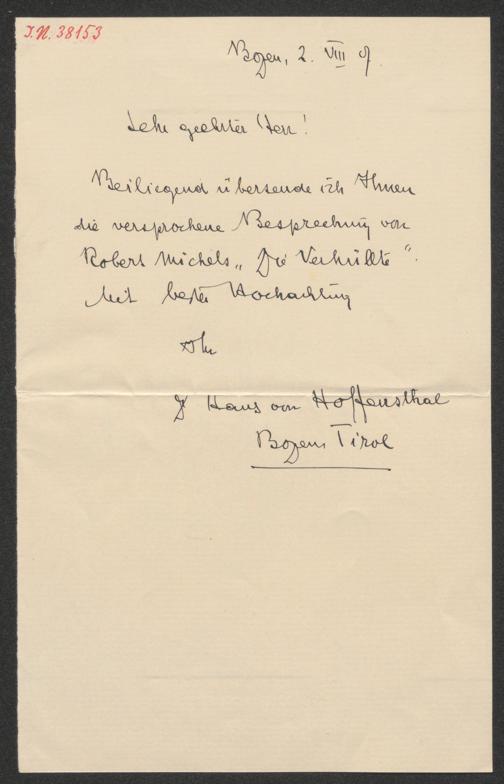 I.N. 38153
Bozen, 2. VIII
Sehr geehrter Herr!
Beiliegend übersende ich Ihnen
die versprochene Besprechung von
Robert Michels „Die Verhüllte“.
Mit bester Hochachtung
Ihr
Dr Hans von Hoffensthal
Bozen Tirol